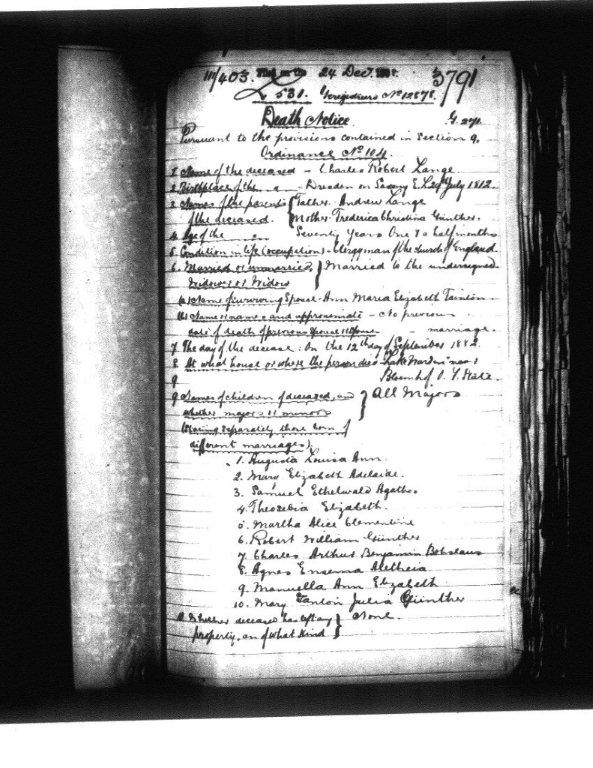 111/403. 24 Dec. 3791
L 531. No 12878.
Death Notice
Pursuant to the provisions contained in Section 9.
Ordinance No 104.
1 Name of the deceased - Charles Robert Lange
2 Birthplace of the " - Dresden in Saxony July 1812.
3 Names of the parents Father. Andrew Lange
of the deceased. Mother. Frederica Christina Günther.
4 Age of the " Seventy Years One & a half months
5 Condition in life (occupation) - Clergyman of the Church of England.
6. Married or unmarried, Married to the undersigned
Widower or Widow
(a) Name of surviving Spouse - Ann Maria Elizabeth Tainton
(b) Name or names and approximate - No previous
date of death of previous spouse or spouses - marriage.
7 The day of the decease: On the 12th day of September 1882.
8 At what house or where the person died - near
Bloemhof O. F. State.
9
9 Names of children of deceased, and All Majors
whether majors or minors
(Stating separately those born of
different marriages)
1. Augusta Louisa Ann.
2. Mary Elizabeth Adelaide.
3. Samuel Ethelwald Agathos.
4. Theosebia Elizabeth.
5. Martha Alice Clementine
6. Robert William Günther
7 Charles Arthur Benjamin
8. Agnes Aletheia
9. Manuella Ann Elizabeth
10. Mary Tainton Julia Günther
Whether deceased has left any None.
property, and of what kind